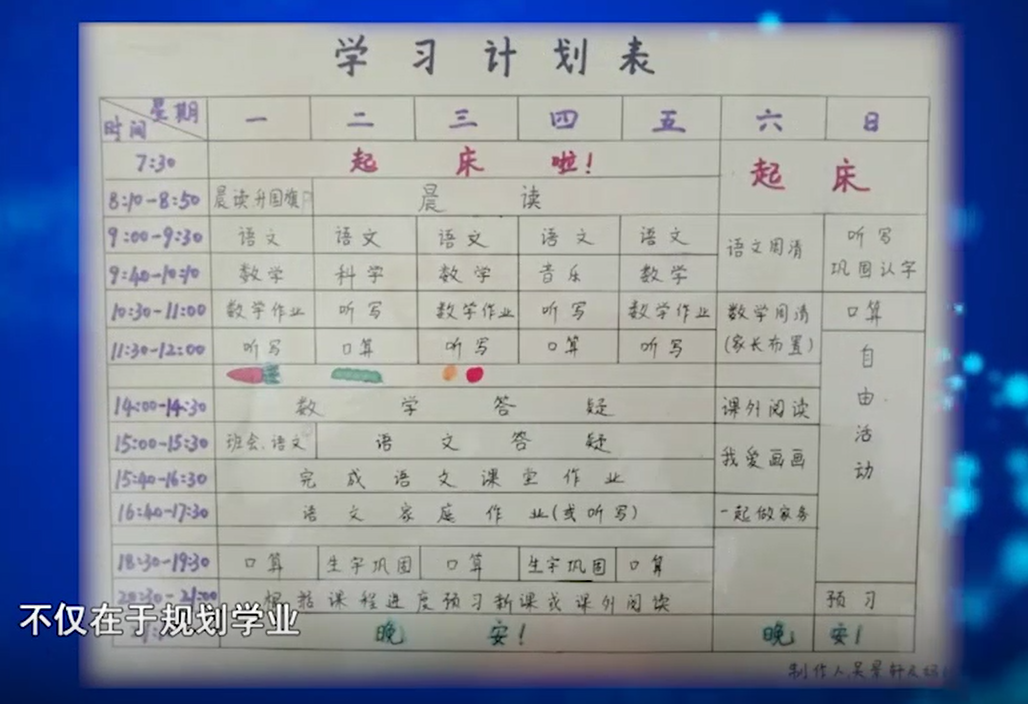 学习计划表
星期 时间 一 二 三 四 五 六 日
7:30 起床啦! 起床
8:10-8:50 晨读升国旗 晨读
9:00-9:30 语文 语文 语文 语文 语文 语文周清 听写
9:40-10:10 数学 科学 数学 音乐 数学 巩固认字
10:30-11:00 数学作业 听写 数学作业 听写 数学作业 数学周清 口算
11:30-12:00 听写 口算 听写 口算 听写 (家长布置) 自由活动
14:00-14:30 数学答疑 课外阅读
15:00-15:30 班会、语文 语文答疑 我爱画画
15:40-16:30 完成语文课堂作业
16:40-17:30 语文家庭作业(或听写) 一起做家务
18:30-19:30 口算 生字巩固 口算 生字巩固 口算
20:30-21:00 根据课程进度预习新课或课外阅读 预习
不仅在于规划学业
晚安! 晚安!
制作人